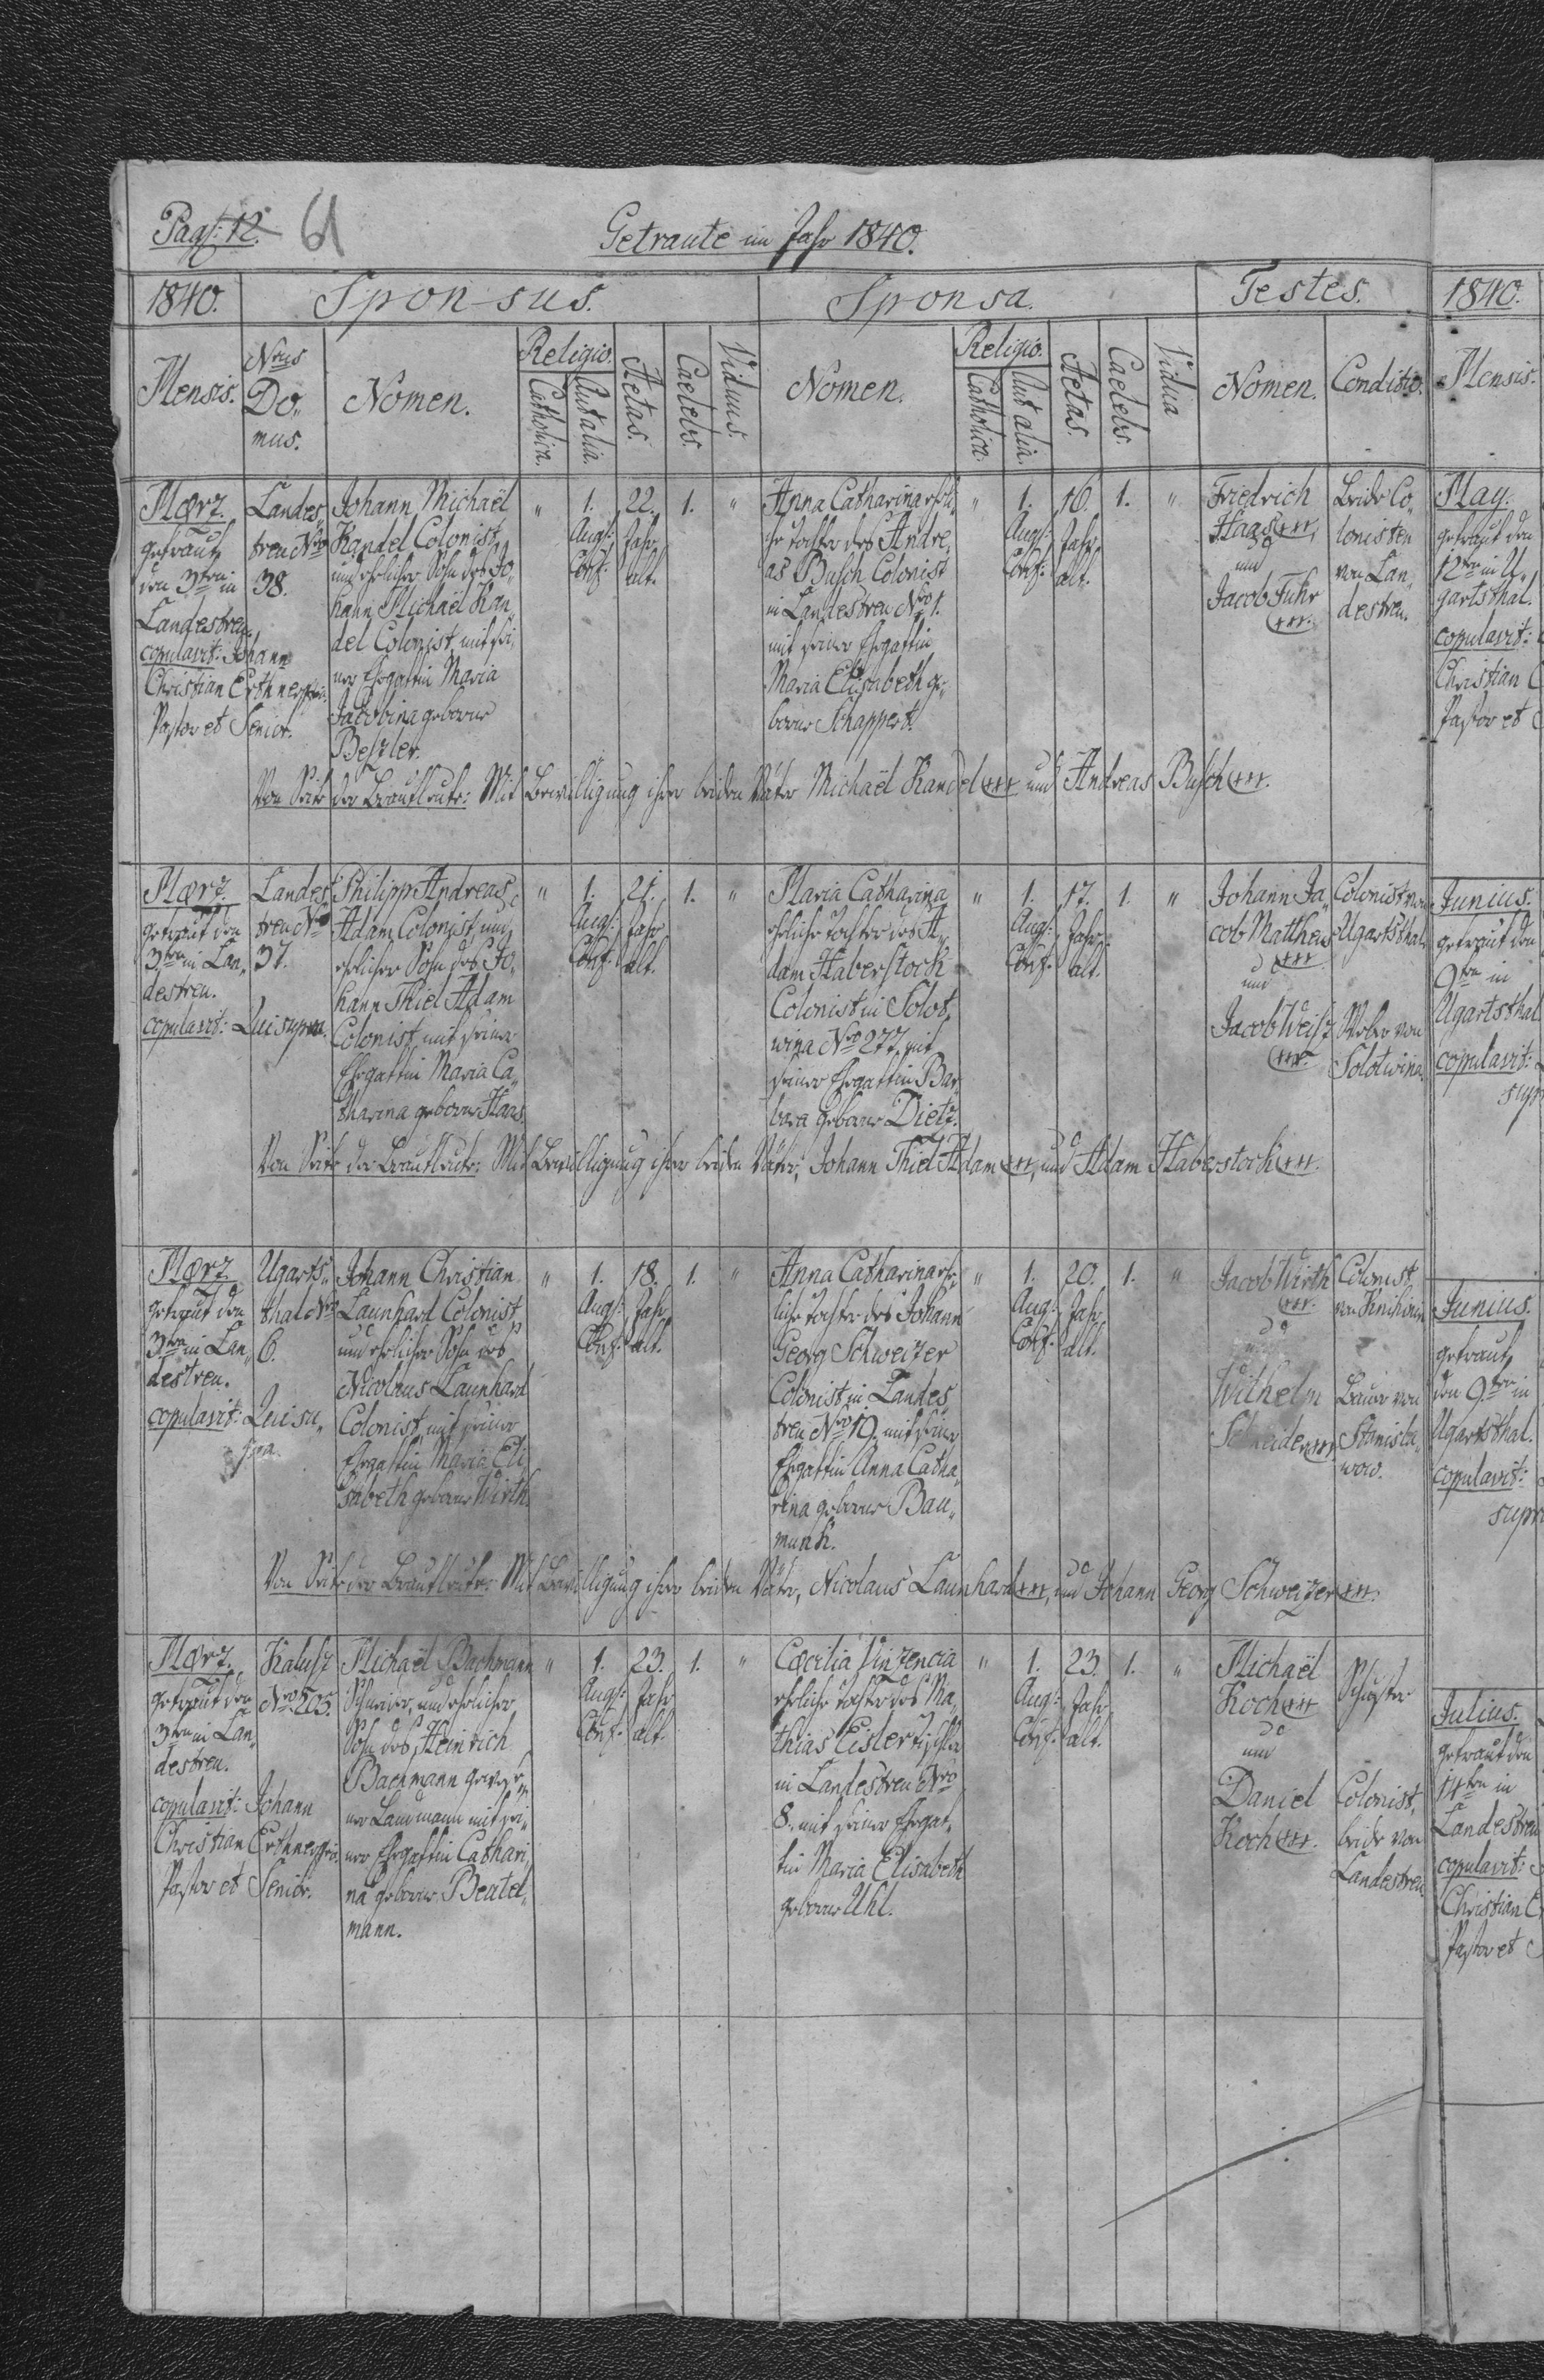 Pag: 12. 61
Getraute im Jahr 1840.
1840. Sponsus. Sponsa. Testes.
Mensis. Nrus Do„ mus. Nomen. Religio. Catholica. Aut alia. Aetas. Caelebs. Viduus. Nomen. Religio. Catholica. Aut alia. Aetas. Caelebs. Vidua Nomen. Conditio.
Maerz.
getraut
den 3ten in
Landestreu,
copulavit: Johann
Christian
Pastor et Senior.
Landes„
treu Nro
38.
Johann Michaël
Kandel Colonist,
und ehelicher Sohn des Jo„
hann Michaël Kan„
del Colonist, mit sei„
ner Ehegattin Maria
Jacobina geborne
Beszler.
" 1. 22. 1. "
Augs: Jahr
Conf: alt.
Anna Catharina eheli„
che Tochter des Andre„
as Busch Colonist
in Landestreu Nro 1.
mit seiner Ehegattin
Maria Elisabeth ge„
borne Schappert.
" 1. 16. 1. "
Augs: Jahr
Conf: alt.
Friedrich
Haas +++,
und
Jacob Fuhr
+++.
Beide Co„
lonisten
von Lan„
destreu.
Von Seite der Brautleute: Mit Bewilligung ihrer beiden Väter Michaël Kandel +++ und Andreas Busch +++.
Maerz.
getraut den
3ten in Lan„
destreu.
copulavit: Qui supra.
Landes„
treu Nro
37.
Philipp Andreas
Adam Colonist, und
ehelicher Sohn des Jo„
hann Thiel Adam
Colonist, mit seiner
Ehegattin Maria Ca„
tharina geborne Haas.
" 1. 21. 1. "
Augs: Jahr
Conf: alt.
Maria Catharina
eheliche Tochter des A„
dam Haberstock
Colonist in Solot„
wina Nro 277. mit
seiner Ehegattin Bar„
bara geborne Dietz.
" 1. 17. 1. "
Augs: Jahr
Conf: alt.
Johann Ja„
cob Mattheus
+++
und
Jacob Weisz
+++.
Colonist von
Ugartsthal
Weber von
Solotwina.
Von Seite der Brautleute: Mit Bewilligung ihrer beiden Väter, Johann Thiel Adam +++, und Adam Haberstock +++.
Maerz.
getraut den
3ten in Lan„
destreu.
copulavit: Qui su„
pra.
Ugarts„
thal Nro
6.
Johann Christian
Launhard Colonist
und ehelicher Sohn des
Nicolaus Launhard
Colonist, mit seiner
Ehegattin Maria Eli„
sabeth geborne Wirth.
" 1. 18. 1. "
Augs: Jahr
Conf: alt.
Anna Catharina ehe„
liche Tochter des Johann
Georg Schweizer
Colonist in Landes„
treu Nro 19. mit seiner
Ehegattin Anna Catha„
rina geborne Bau„
munk.
" 1. 20. 1. "
Augs: Jahr
Conf: alt.
Jacob Wirth
+++.
und
Wilhelm
Schneider +++.
Colonist
von Knihinin
Bauer von
Stanisla„
wow.
Von Seite der Brautleute: Mit Bewilligung ihrer beiden Väter, Nicolaus Launhard +++, und Johann Georg Schweizer +++.
Maerz.
getraut den
3ten in Lan„
destreu.
copulavit: Johann
Christian
Pastor et Senior.
Kalusz
Nro 505.
Michaël Bachmann
Schneider, und ehelicher
Sohn des Heinrich
Bachmann gewese„
ner Landmann mit sei„
ner Ehegattin Cathari„
na geborne Beatel„
mann.
" 1. 23. 1. "
Augs: Jahr
Conf: alt.
Cæcilia Vinzencia
eheliche Tochter des Ma„
thias Eisler Tischler
in Landestreu Nro
8. mit seiner Ehegat„
tin Maria Elisabeth
geborne Uhl.
" 1. 23. 1. "
Augs: Jahr
Conf: alt.
Michaël
Koch +++
und
Daniel
Koch +++.
Schuster
Colonist,
beide von
Landestreu.
1840.
Mensis.
May.
getraut den
12ten in U„
gartsthal.
copulavit:
Christian
Pastor et
Junius.
getraut den
9ten in
Ugartsthal
copulavit:
Junius.
getraut
den 9ten in
Ugartsthal.
copulavit:
Julius.
getraut den
14ten in
Landestreu
copulavit:
Christian
Pastor et